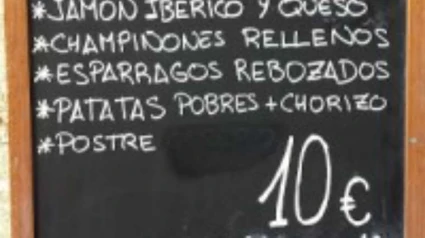 *JAMON IBERICO Y QUESO
*CHAMPIÑONES RELLENOS
*ESPARRAGOS REBOZADOS
*PATATAS POBRES + CHORIZO
*POSTRE
10€